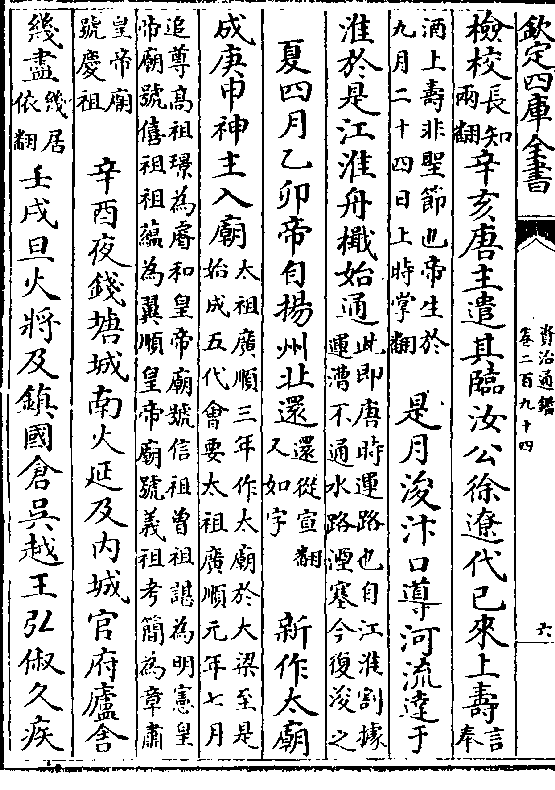 欽定四庫全書
資治通鑑
卷二百九十四
六
檢校長知兩翻辛亥唐主遣其臨汝公徐遼代已來上壽言奉
酒上壽非聖節也帝生於九月二十四日上時掌翻　是月浚汴口導河流達于
淮於是江淮舟檝始通此即唐時運路也自江淮割據運漕不通水路湮塞今復浚之
夏四月乙卯帝自揚州北還還從宣翻又如字　新作太廟
成庚申神主入廟太祖廣順三年作太廟於大梁至是始成五代會要太祖廣順元年七月
追尊高祖璟為睿和皇帝廟號信祖曾祖諶為明憲皇帝廟號僖祖祖蘊為翼順皇帝廟號義祖考簡為章肅
皇帝廟號慶祖　辛酉夜錢塘城南火延及内城官府廬舍
幾盡幾居依翻壬戌旦火將及鎮國倉吳越王弘俶久疾